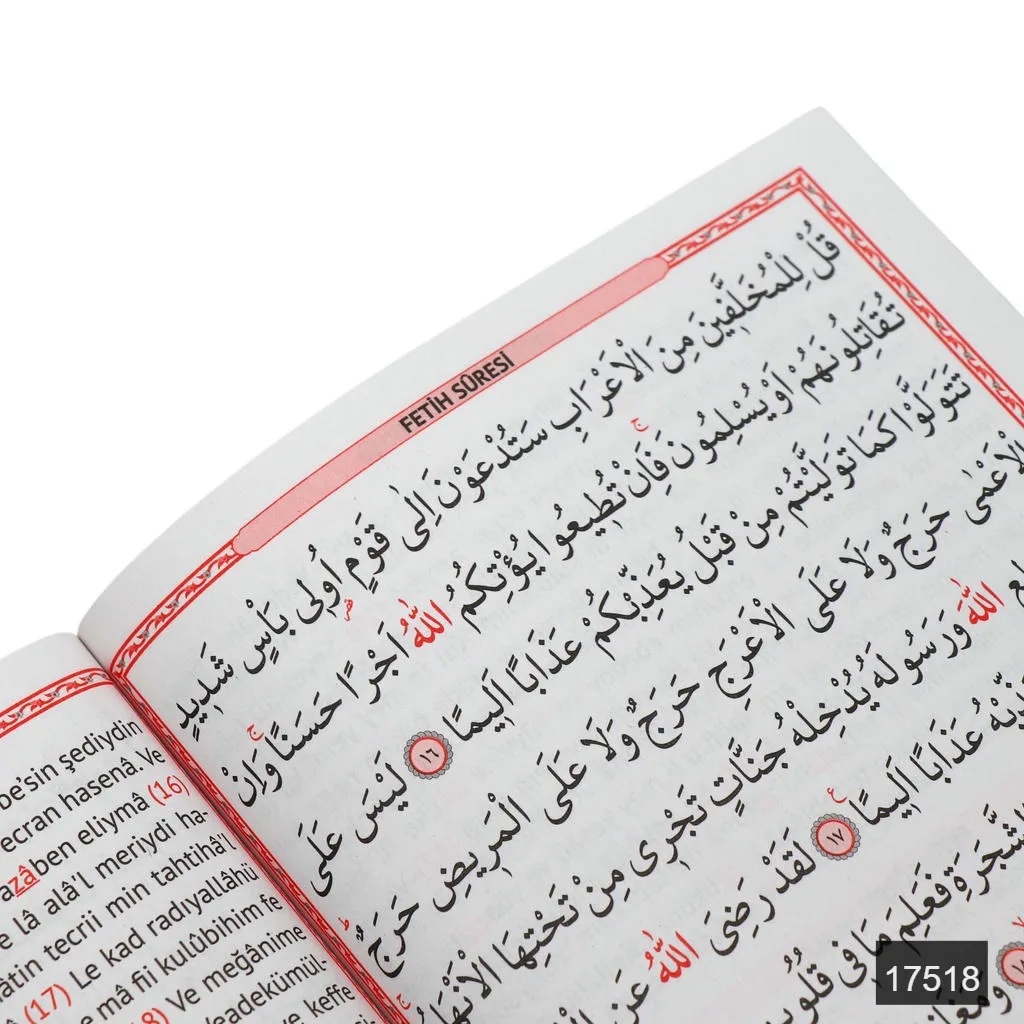 FETİH SÛRESİ
قُلْ لِلْمُخَلَّفٖينَ مِنَ الْاَعْرَابِ سَتُدْعَوْنَ اِلٰى قَوْمٍ اُو۬لٖى بَاْسٍ شَدٖيدٍ
تُقَاتِلُونَهُمْ اَوْ يُسْلِمُونَ ۚ فَاِنْ تُطٖيعُوا يُؤْتِكُمُ اللّٰهُ اَجْرًا حَسَنًا ۚ وَاِنْ
تَتَوَلَّوْا كَمَا تَوَلَّيْتُمْ مِنْ قَبْلُ يُعَذِّبْكُمْ عَذَابًا اَلٖيمًا ﴿١٦﴾ لَيْسَ عَلَى
الْاَعْمٰى حَرَجٌ وَلَا عَلَى الْاَعْرَجِ حَرَجٌ وَلَا عَلَى الْمَرٖيضِ حَرَجٌ
اللّٰهَ وَرَسُولَهُ يُدْخِلْهُ جَنَّاتٍ تَجْرٖى مِنْ تَحْتِهَا الْاَنْهَا
عَذَابًا اَلٖيمًا ﴿١٧﴾ لَقَدْ رَضِىَ اللّٰهُ عَنِ
الشَّجَرَةِ فَعَلِمَ مَا فٖى قُلُوبِ
be'sin şediydin
ecran hasenâ. Ve
azâben eliymâ (16)
lâ alâ'l meriydi ha-
âtin tecrii min tahtihâ'l
(17) Le kad radıyallâhü
mâ fii kulûbihim fe
Ve meğânime
veadekümül-
keffe
17518